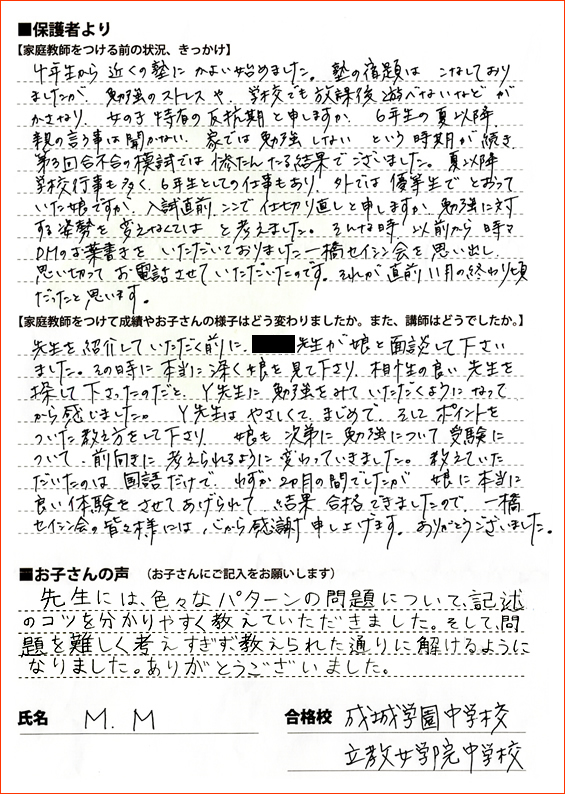 ■保護者より
【家庭教師をつける前の状況、きっかけ】
4年生から近くの塾にかよい始めました。塾の宿題はこなしており
ましたが、勉強のストレスや、学校でも放課後遊べないなどが
かさなり、女の子特有の反抗期と申しますか、6年生の夏以降
親の言う事は聞かない、家では勉強しないという時期が続き
第3回合不合の模試では惨たんたる結果でございました。夏以降
学校行事も多く、6年生としての仕事もあり、外では優等生でとおって
いた娘ですが、入試直前、ここで仕切り直しと申しますか、勉強に対
する姿勢を変えなくてはと考えました。そんな時、以前から時々
DMのお葉書きをいただいておりました一橋セイシン会を思い出し、
思い切ってお電話させていただいたのです。それが直前11月の終わり頃
だったと思います。
【家庭教師をつけて成績やお子さんの様子はどう変わりましたか。また、講師はどうでしたか。】
先生を紹介していただく前に、先生が娘と面談して下さい
ました。その時に本当に深く娘を見て下さり、相性の良い先生を
探して下さったのだと、Y先生に勉強をみていただくようになって
から感じました。Y先生はやさしくて、まじめで、そしてポイントを
ついた教え方をして下さり、娘も次第に勉強について、受験に
ついて、前向きに考えられるように変わっていきました。教えていた
だいたのは国語だけで、わずか2ヶ月の間でしたが、娘に本当に
良い体験をさせてあげられて、結果合格できましたので、一橋
セイシン会の皆々様には、心から感謝申し上げます。ありがとうございました。
■お子さんの声 （お子さんにご記入をお願いします）
先生には、色々なパターンの問題について、記述
のコツを分かりやすく教えていただきました。そして、問
題を難しく考えすぎず教えられた通りに解けるように
なりました。ありがとうございました。
氏名 M.M
合格校 成城学園中学校
立教女学院中学校